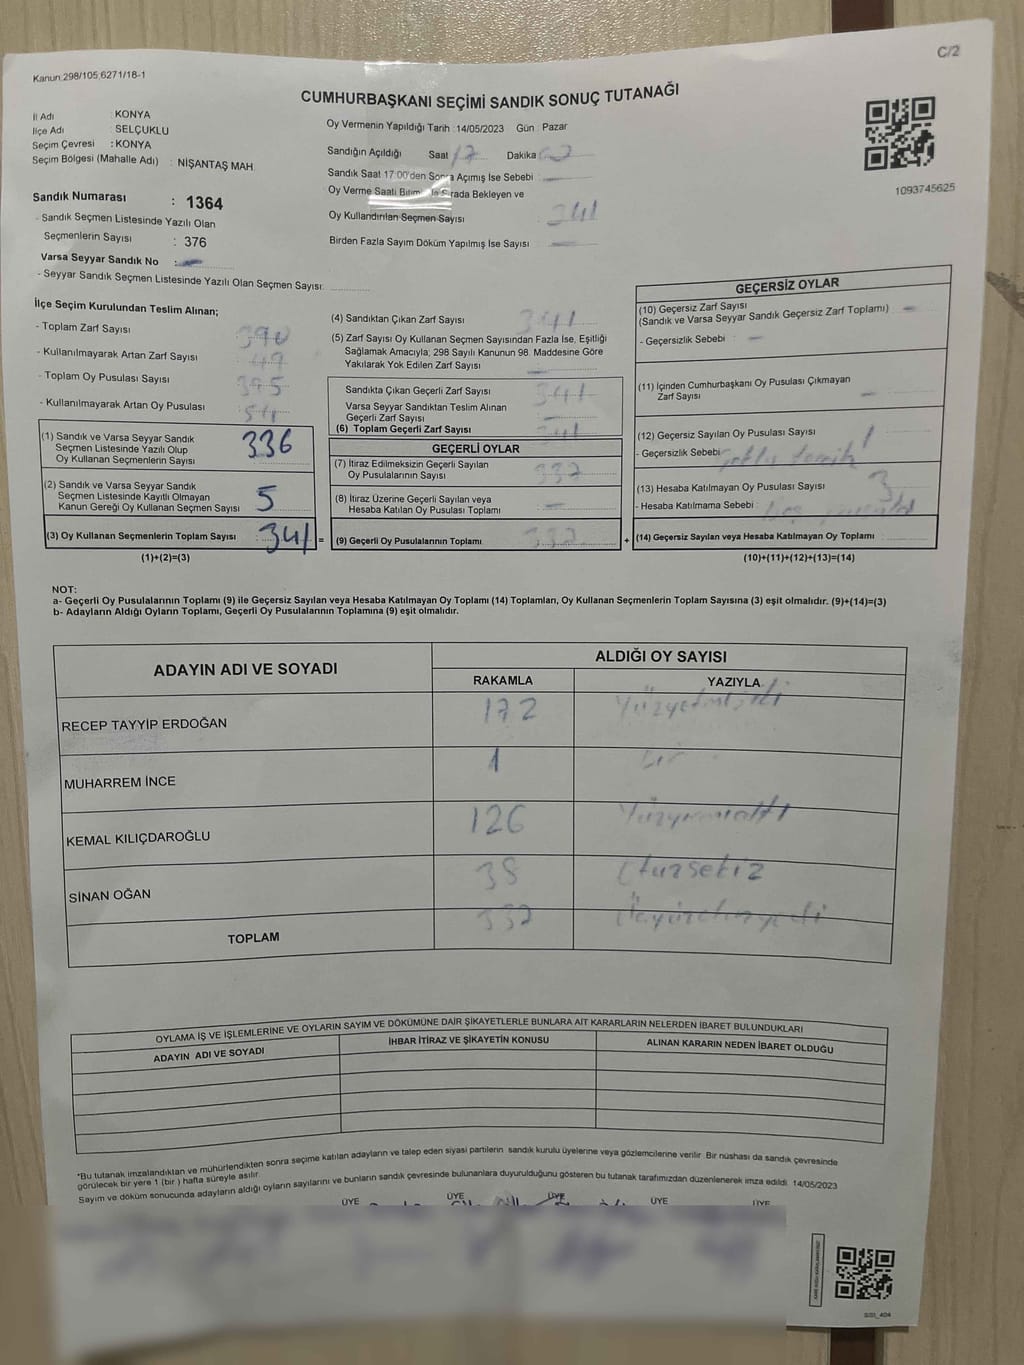 C/2
Kanun:298/105,6271/18-1
CUMHURBAŞKANI SEÇİMİ SANDIK SONUÇ TUTANAĞI
İl Adı : KONYA
İlçe Adı : SELÇUKLU
Seçim Çevresi : KONYA
Seçim Bölgesi (Mahalle Adı) : NİŞANTAŞ MAH.
Sandık Numarası : 1364
- Sandık Seçmen Listesinde Yazılı Olan
Seçmenlerin Sayısı : 376
Varsa Seyyar Sandık No :
- Seyyar Sandık Seçmen Listesinde Yazılı Olan Seçmen Sayısı:
Oy Vermenin Yapıldığı Tarih :14/05/2023 Gün : Pazar
Sandığın Açıldığı Saat 17 Dakika
Sandık Saat 17:00'den Sonra Açımış İse Sebebi :
Oy Verme Saati Sırada Bekleyen ve
Oy Kullandırılan Seçmen Sayısı : 341
Birden Fazla Sayım Döküm Yapılmış İse Sayısı :
1093745625
İlçe Seçim Kurulundan Teslim Alınan;
- Toplam Zarf Sayısı : 390
- Kullanılmayarak Artan Zarf Sayısı : 49
- Toplam Oy Pusulası Sayısı : 395
- Kullanılmayarak Artan Oy Pusulası : 54
(1) Sandık ve Varsa Seyyar Sandık
Seçmen Listesinde Yazılı Olup
Oy Kullanan Seçmenlerin Sayısı : 336
(2) Sandık ve Varsa Seyyar Sandık
Seçmen Listesinde Kayıtlı Olmayan
Kanun Gereği Oy Kullanan Seçmen Sayısı : 5
(3) Oy Kullanan Seçmenlerin Toplam Sayısı : 341 =
(1)+(2)=(3)
(4) Sandıktan Çıkan Zarf Sayısı : 341
(5) Zarf Sayısı Oy Kullanan Seçmen Sayısından Fazla İse, Eşitliği
Sağlamak Amacıyla; 298 Sayılı Kanunun 98. Maddesine Göre
Yakılarak Yok Edilen Zarf Sayısı :
Sandıkta Çıkan Geçerli Zarf Sayısı : 341
Varsa Seyyar Sandıktan Teslim Alınan
Geçerli Zarf Sayısı :
(6) Toplam Geçerli Zarf Sayısı : 341
GEÇERLİ OYLAR
(7) İtiraz Edilmeksizin Geçerli Sayılan
Oy Pusulalarının Sayısı : 337
(8) İtiraz Üzerine Geçerli Sayılan veya
Hesaba Katılan Oy Pusulası Toplamı : -
(9) Geçerli Oy Pusulalarının Toplamı : 337 +
GEÇERSİZ OYLAR
(10) Geçersiz Zarf Sayısı : -
(Sandık ve Varsa Seyyar Sandık Geçersiz Zarf Toplamı)
- Geçersizlik Sebebi : -
(11) İçinden Cumhurbaşkanı Oy Pusulası Çıkmayan
Zarf Sayısı : -
(12) Geçersiz Sayılan Oy Pusulası Sayısı : 1
- Geçersizlik Sebebi:
(13) Hesaba Katılmayan Oy Pusulası Sayısı : 3
- Hesaba Katılmama Sebebi :
(14) Geçersiz Sayılan veya Hesaba Katılmayan Oy Toplamı :
(10)+(11)+(12)+(13)=(14)
NOT:
a- Geçerli Oy Pusulalarının Toplamı (9) ile Geçersiz Sayılan veya Hesaba Katılmayan Oy Toplamı (14) Toplamları, Oy Kullanan Seçmenlerin Toplam Sayısına (3) eşit olmalıdır. (9)+(14)=(3)
b- Adayların Aldığı Oyların Toplamı, Geçerli Oy Pusulalarının Toplamına (9) eşit olmalıdır.
ADAYIN ADI VE SOYADI ALDIĞI OY SAYISI
RAKAMLA YAZIYLA
RECEP TAYYİP ERDOĞAN 172 Yüzyetmişiki
MUHARREM İNCE 1 bir
KEMAL KILIÇDAROĞLU 126 Yüzyirmialtı
SİNAN OĞAN 38 Otuzsekiz
TOPLAM 337 Üçyüzotuzyedi
OYLAMA İŞ VE İŞLEMLERİNE VE OYLARIN SAYIM VE DÖKÜMÜNE DAİR ŞİKAYETLERLE BUNLARA AİT KARARLARIN NELERDEN İBARET BULUNDUKLARI
ADAYIN ADI VE SOYADI İHBAR İTİRAZ VE ŞİKAYETİN KONUSU ALINAN KARARIN NEDEN İBARET OLDUĞU
*Bu tutanak imzalandıktan ve mühürlendikten sonra seçime katılan adayların ve talep eden siyasi partilerin sandık kurulu üyelerine veya gözlemcilerine verilir. Bir nüshası da sandık çevresinde
görülecek bir yere 1 (bir ) hafta süreyle asılır.
Sayım ve döküm sonucunda adayların aldığı oyların sayılarını ve bunların sandık çevresinde bulunanlara duyurulduğunu gösteren bu tutanak tarafımızdan düzenlenerek imza edildi. 14/05/2023
ÜYE ÜYE ÜYE ÜYE ÜYE